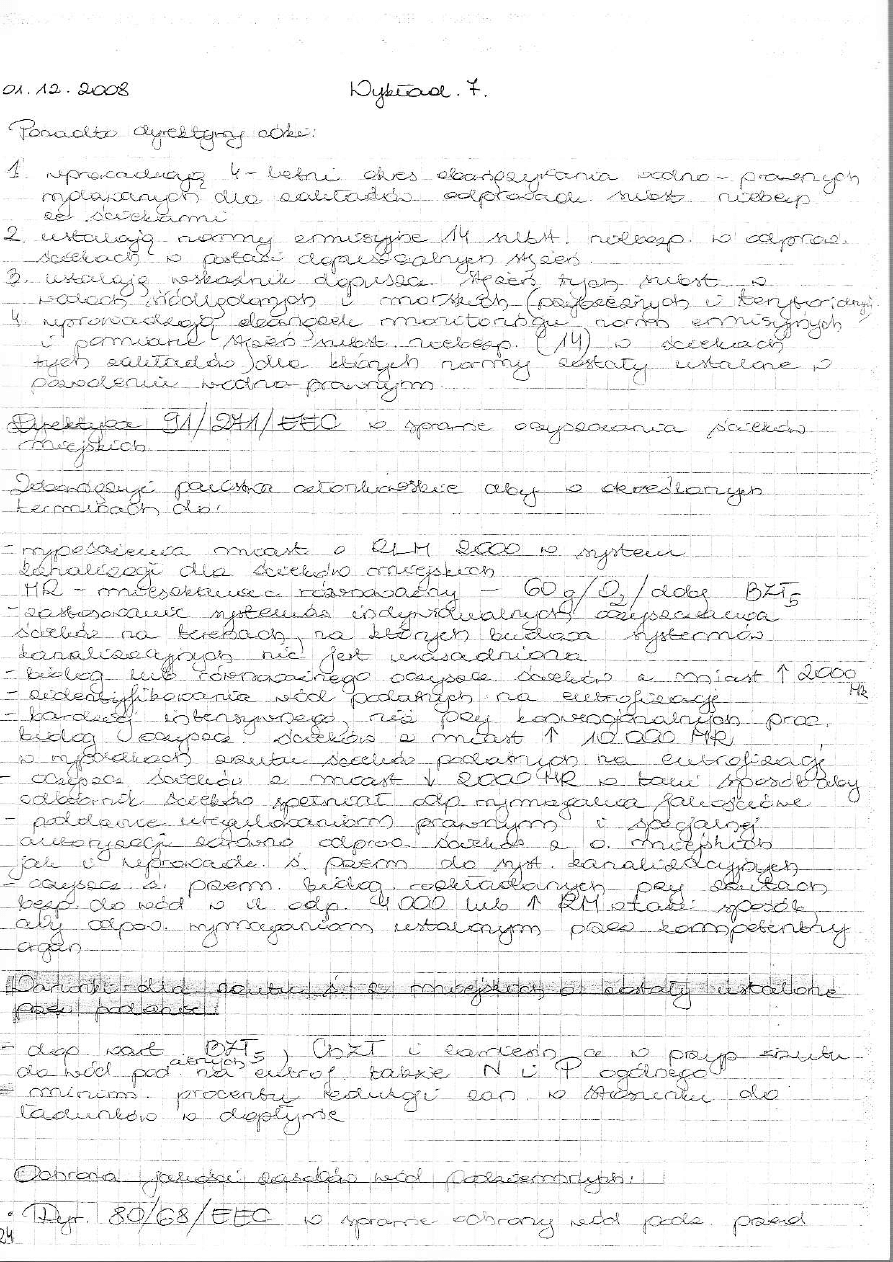 01.12.2008 Wykład. 7.
Ponadto dyrektywy córki:
1. wprowadzają 4-letni okres obowiązywania wodno-prawnych
wydawanych dla zakładów odprowadz. subst niebezp
ze ściekami
2. ustalają normy emisyjne 14 subst. niebezp. w odprow.
ściekach w postaci dopuszczalnych stężeń.
3. ustalają wskaźnik dopuszcz. stężeń tych subst w
wodach śródlądowych i morskich (przybrzeżnych i terytorialnych)
4. wprowadzają obowiązek monitoringu norm emisyjnych
i pomiaru stężeń subst. niebezp. (14) w ściekach
tych zakładów dla których normy zostały ustalone w
pozwoleniu wodno-prawnym
Dyrektywa 91/271/EEC w sprawie oczyszczania ścieków
miejskich
Zobowiązuje państwa członkowskie aby w określonych
terminach do:
- wyposażenia miast o RLM 2000 w system
kanalizacji dla ścieków miejskich
MR - mieszkaniec równoważny - 60 g/O2/dobę BZT5
- zastosowanie systemów indywidualnych oczyszczania
ścieków na terenach, na których budowa systemów
kanalizacyjnych nie jest uzasadniona
- biolog lub równoważnego oczyszcz ścieków z miast ↑ 2000
MR
- zidentyfikowania wód podatnych na eutrofizację
- bardziej intensywnego, niż przy konwencjonalnych proc.
biolog oczyszcz. ścieków z miast ↑ 10 000 MR
w wypadkach zrzutu ścieków podatnych na eutrofizację
- oczyszcz ścieków z miast ↓ 2000 MR w taki sposób aby
odbiornik ścieków spełniał odp wymagania jakościowe
- poddanie uregulowaniom prawnym i specjalnej
autoryzacji zarówno odprow. ścieków z o. miejskich
jak i wprowadz. ś. przem do syst. kanalizacyjnych
- oczyszcz ś. przem. biolog. rozkładalnych przy zrzutach
bezp do wód w il odp. 4 000 lub ↑ RM w taki sposób,
aby odpow. wymaganiom ustalonym przez kompetentny
organ
Warunki dla zrzutu ś. z miejskich o. zostały ustalone
przez podanie:
- dop wart BZT5, ChZT i zawiesin, a w przyp zrzutu
do wód podatnych na eutrof także N i P ogólnego
- minim. procentu redukcji zan w stosunku do
ładunków w dopływie
Ochrona jakości zasobów wód podziemnych:
• Dyr. 80/68/EEC w sprawie ochrony wód podz. przed
24